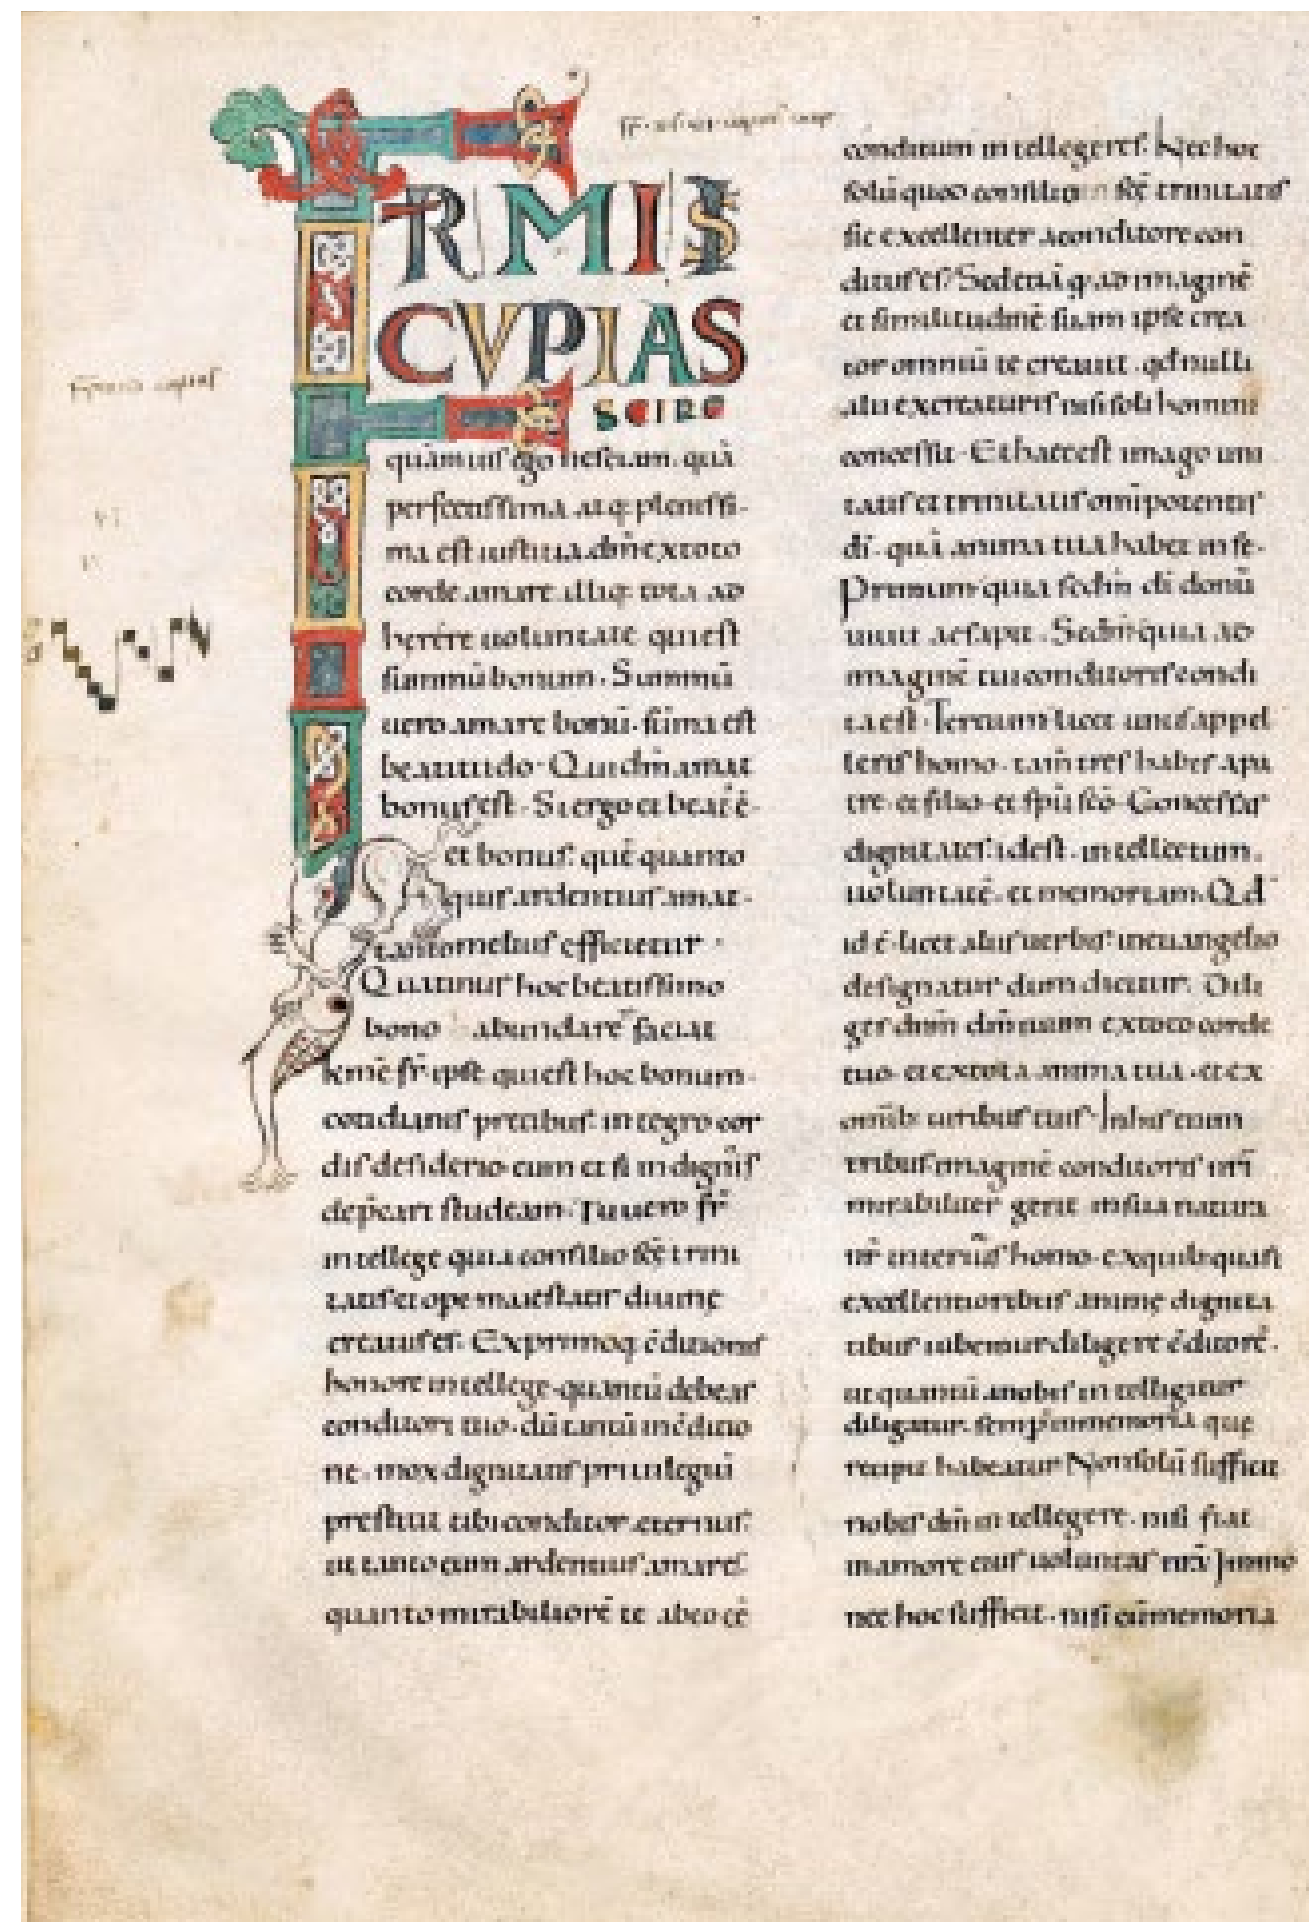 FR̄ MI SI
CVPIAS
SCIRE
quāmuis ego nesciam. quā
perfectissima atq; plenissi-
ma est iustitia. dm̄ ex toto
corde amare. illiq; tota ad
herére uoluntate qui est
summū bonum. Summū
uero amare bonū. sūma est
beatitudo. Qui dm̄ amat
bonus est. Si ergo et beat' ē.
et bonus. quē quanto
quis ardentius amat.
tanto melius efficietur.
Quatinus hoc beatissimo
bono abundare faciat
temē fr̄ ipse qui est hoc bonum.
cotidianis precibus. integro cor
dis desiderio. eum et si indignus
dep̄cari studeam. Tu uero fr̄
intellege quia consilio sc̄ę trini
tatis et ope maiestatis diuinę
creatus es. Ex primoq; c̄ditionis
honore intellege. quantū debeas
conditori tuo. dū tantū in c̄ditio
ne. mox dignitatis priuilegiū
prestitit tibi conditor ęternus.
ut tanto eum ardentius amares.
quanto mirabiliorē te ab eo cē
conditum intellegeres. Nec hoc
solū quod consilio sc̄ę trinitatis
sic excellenter a conditore con
ditus es. Sed etiā q̄ ad imaginē
et similitudinē suam ipse crea
tor omniū te creauit. qd nulli
alii ex creaturis nisi soli homini
concessit. Et haec est imago uni
tatis et trinitatis omīpotentis
dī. quā anima tua habet in se.
Primum quia scdm̄ dī donū
uiuit ac sapit. Scdm̄ quia ad
imaginē tui conditoris condi
ta est. Tertium licet unus appel
leris homo. tam̄ tres habes a pa
tre. et filio. et sp̄u sc̄o. Concessas
dignitates. id est. intellectum.
uoluntatē. et memoriam. Qd
id ē. licet aliis uerbis in euangelio
designatur dum dicitur. Dili
ges dnm̄ dm̄ tuum ex toto corde
tuo. et ex tota anima tua. et ex
omīb; uiribus tuis. In his enim
tribus imaginē conditoris nr̄i
mirabiliter gerit in sua natura
nr̄ interius homo. ex quib; quasi
excellentioribus animę dignita
tibus iubemur diligere c̄ditorē.
ut quantū a nobis intelligitur
diligatur. semp in memoria quę
recipit habeatur. Non solū sufficit
nobis dm̄ intellegere. nisi fiat
in amore eius uoluntas nr̄a. Immo
nec hoc sufficit. nisi cū memoria